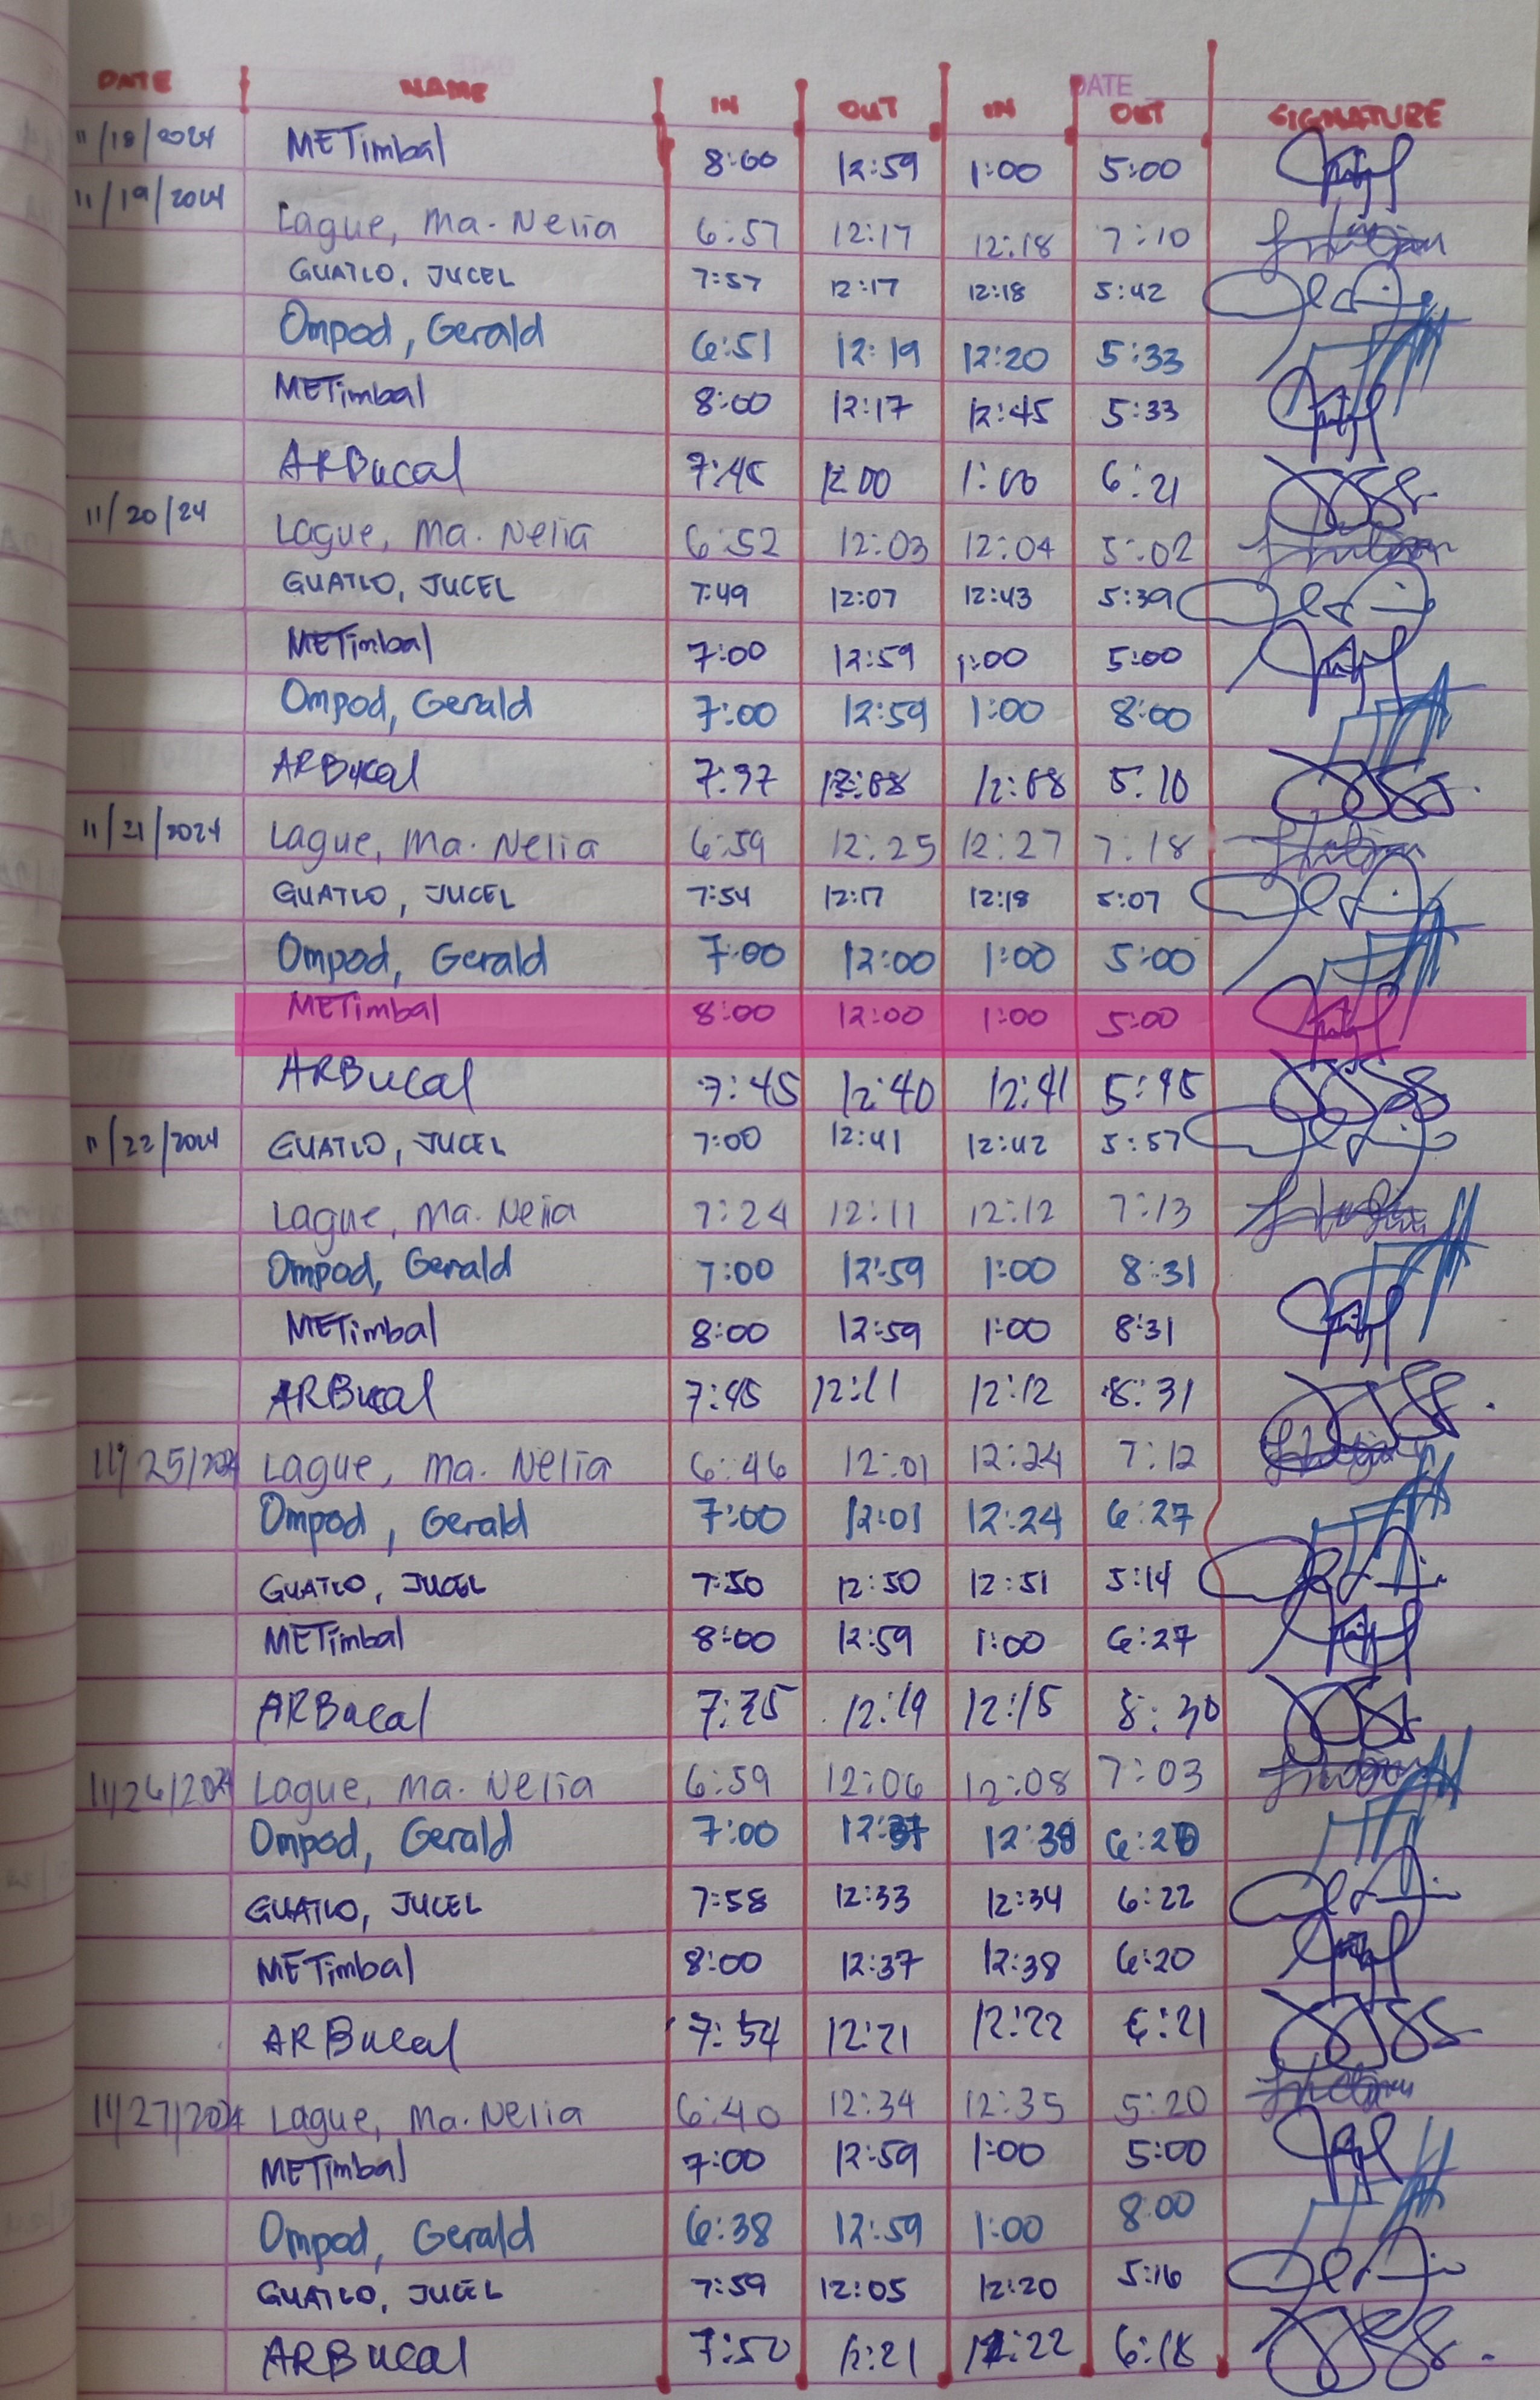 DATE
DATE NAME IN OUT IN OUT SIGNATURE
11/18/2024 METimbal 8:00 12:59 1:00 5:00
11/19/2024 Lague, Ma. Nelia 6:57 12:17 12:18 7:10
GUATLO, JUCEL 7:57 12:17 12:18 5:42
Ompod, Gerald 6:51 12:19 12:20 5:33
METimbal 8:00 12:17 12:45 5:33
ARBucal 7:45 12:00 1:00 6:21
11/20/24 Lague, Ma. Nelia 6:52 12:03 12:04 5:02
GUATLO, JUCEL 7:49 12:07 12:43 5:39
METimbal 7:00 12:59 1:00 5:00
Ompod, Gerald 7:00 12:59 1:00 8:00
ARBucal 7:37 12:08 12:08 5:10
11/21/2024 Lague, Ma. Nelia 6:59 12:25 12:27 7:18
GUATLO, JUCEL 7:54 12:17 12:18 5:07
Ompod, Gerald 7:00 12:00 1:00 5:00
METimbal 8:00 12:00 1:00 5:00
ARBucal 7:45 12:40 12:41 5:45
11/22/2024 GUATLO, JUCEL 7:00 12:41 12:42 5:57
Lague, Ma. Nelia 7:24 12:11 12:12 7:13
Ompod, Gerald 7:00 12:59 1:00 8:31
METimbal 8:00 12:59 1:00 8:31
ARBucal 7:45 12:11 12:12 8:31
11/25/2024 Lague, Ma. Nelia 6:46 12:01 12:24 7:12
Ompod, Gerald 7:00 12:01 12:24 6:27
GUATLO, JUCEL 7:50 12:50 12:51 5:14
METimbal 8:00 12:59 1:00 6:27
ARBucal 7:35 12:14 12:15 8:30
11/26/2024 Lague, Ma. Nelia 6:59 12:06 12:08 7:03
Ompod, Gerald 7:00 12:37 12:38 6:20
GUATLO, JUCEL 7:58 12:33 12:34 6:22
METimbal 8:00 12:37 12:38 6:20
ARBucal 7:54 12:21 12:22 6:21
11/27/2024 Lague, Ma. Nelia 6:40 12:34 12:35 5:20
METimbal 7:00 12:59 1:00 5:00
Ompod, Gerald 6:38 12:59 1:00 8:00
GUATLO, JUCEL 7:59 12:05 12:20 5:16
ARBucal 7:50 12:21 12:22 6:18